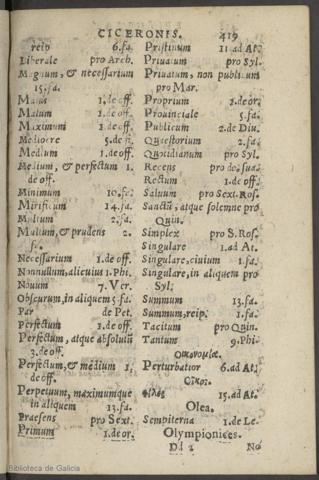 CICERONIS. 419
reip 6.fa.
Liberale pro Arch.
Magnum, & necessarium
15.fa.
Maius 1.de off.
Malum 1.de off.
Maximum 1.de off.
Mediocre 5.de fi.
Medium 1.de off.
Medium, & perfectum 1.
de off.
Minimum 10.fa.
Mirificum 14.fa.
Multum 2.fa.
Multum, & prudens 2.
fi.
Necessarium 1.de off.
Nonnullum, alicuius 1.Phi.
Nouum 7.Ver.
Obscurum, in aliquem 5.fa.
Par de Pet.
Perfectum 1.de off.
Perfectum, atque absolutū
3.de off.
Perfectum, & medium 1.
de off.
Perpetuum, maximumque
in aliquem 13.fa.
Praesens pro Sext.
Primum 1.de or.
Pristinum 11.ad At.
Priuatum pro Syl.
Priuatum, non publicum
pro Mar.
Proprium 1.de or.
Prouinciale 5.fa.
Publicum 2.de Diu.
Quaestorium 2.fa.
Quotidianum pro Syl.
Recens pro do.sua.
Rectum 1.de off.
Saluum pro Sext.Ros.
Sanctū, atque solemne pro
Quin.
Simplex pro S.Ros.
Singulare 1.ad At.
Singulare, ciuium 1.fa.
Singulare, in aliquem pro
Syl.
Summum 13.fa.
Summum, reip. 1.fa.
Tacitum pro Quin.
Tantum 9.Phi.
Οικονομία.
Perturbatior 6.ad At.
Οἶκος.
φίλος 15.ad At.
Olea.
Sempiterna 1.de Le.
Olympionices.
Dd 2 No
Biblioteca de Galicia